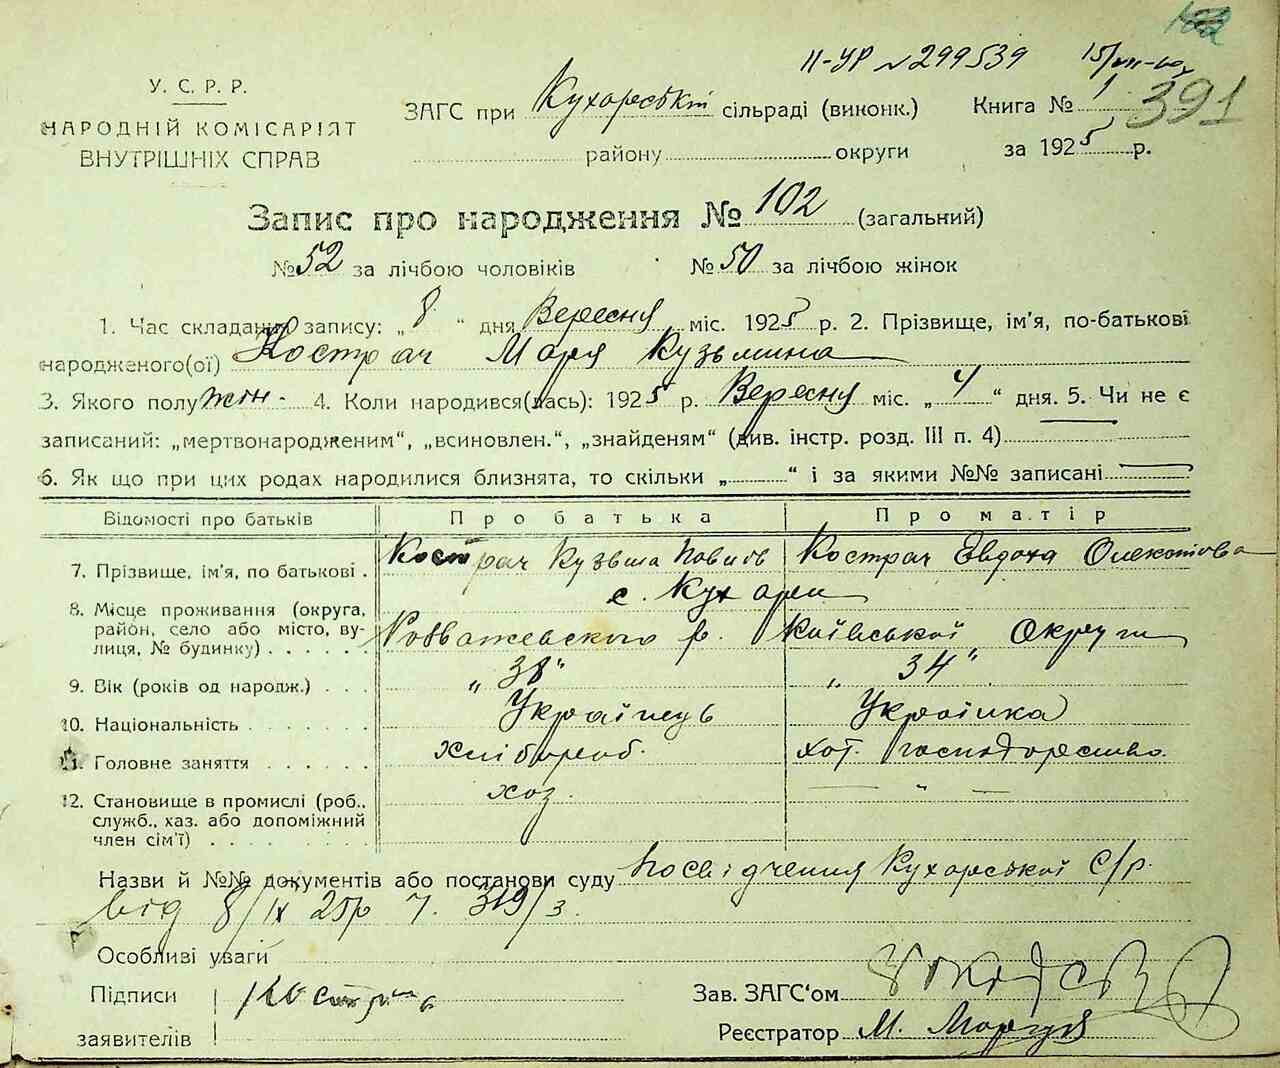 ІІ-УР №299539 15/VII-
391
У. С. Р. Р.
НАРОДНІЙ КОМІСАРІЯТ
ВНУТРІШНІХ СПРАВ
ЗАГС при Кухарській сільраді (виконк.)
району округи
Книга № 1
за 1925 р.
Запис про народження № 102 (загальний)
№ 52 за лічбою чоловіків № 50 за лічбою жінок
1. Час складання запису: „ 8 “ дня Вересня міс. 1925 р. 2. Прізвище, ім'я, по-батькові
народженого(ої) Кострач Марія Кузьмина
3. Якого полу жін. 4. Коли народився(лась): 1925 р. Вересня міс. „ 4 “ дня. 5. Чи не є
записаний: „мертвонародженим“, „всиновлен.“, „знайденям“ (див. інстр. розд. III п. 4)
6. Як що при цих родах народилися близнята, то скільки „ “ і за якими №№ записані
Відомості про батьків Про батька Про матір
7. Прізвище, ім'я, по батькові . Кострач Кузьма Кострач Евдоха
8. Місце проживання (округа, район, село або місто, вулиця, № будинку) . . . . . с. Кухари
Розважевського р. Київської Округи
9. Вік (років од народж.) . . . „ 38 “ „ 34 “
10. Національність . . . . . . . Українець Українка
11. Головне заняття . . . . . . хлібороб. хат. господарство.
12. Становище в промислі (роб., служб., хаз. або допоміжний член сім'ї) . . . . . . . . хоз. — „ —
Назви й №№ документів або постанови суду Посвідчення Кухарської С/р.
від 8/IX 25р ч. 319/з.
Особливі уваги
Підписи
заявителів
Зав. ЗАГС‘ом
Реєстратор М.